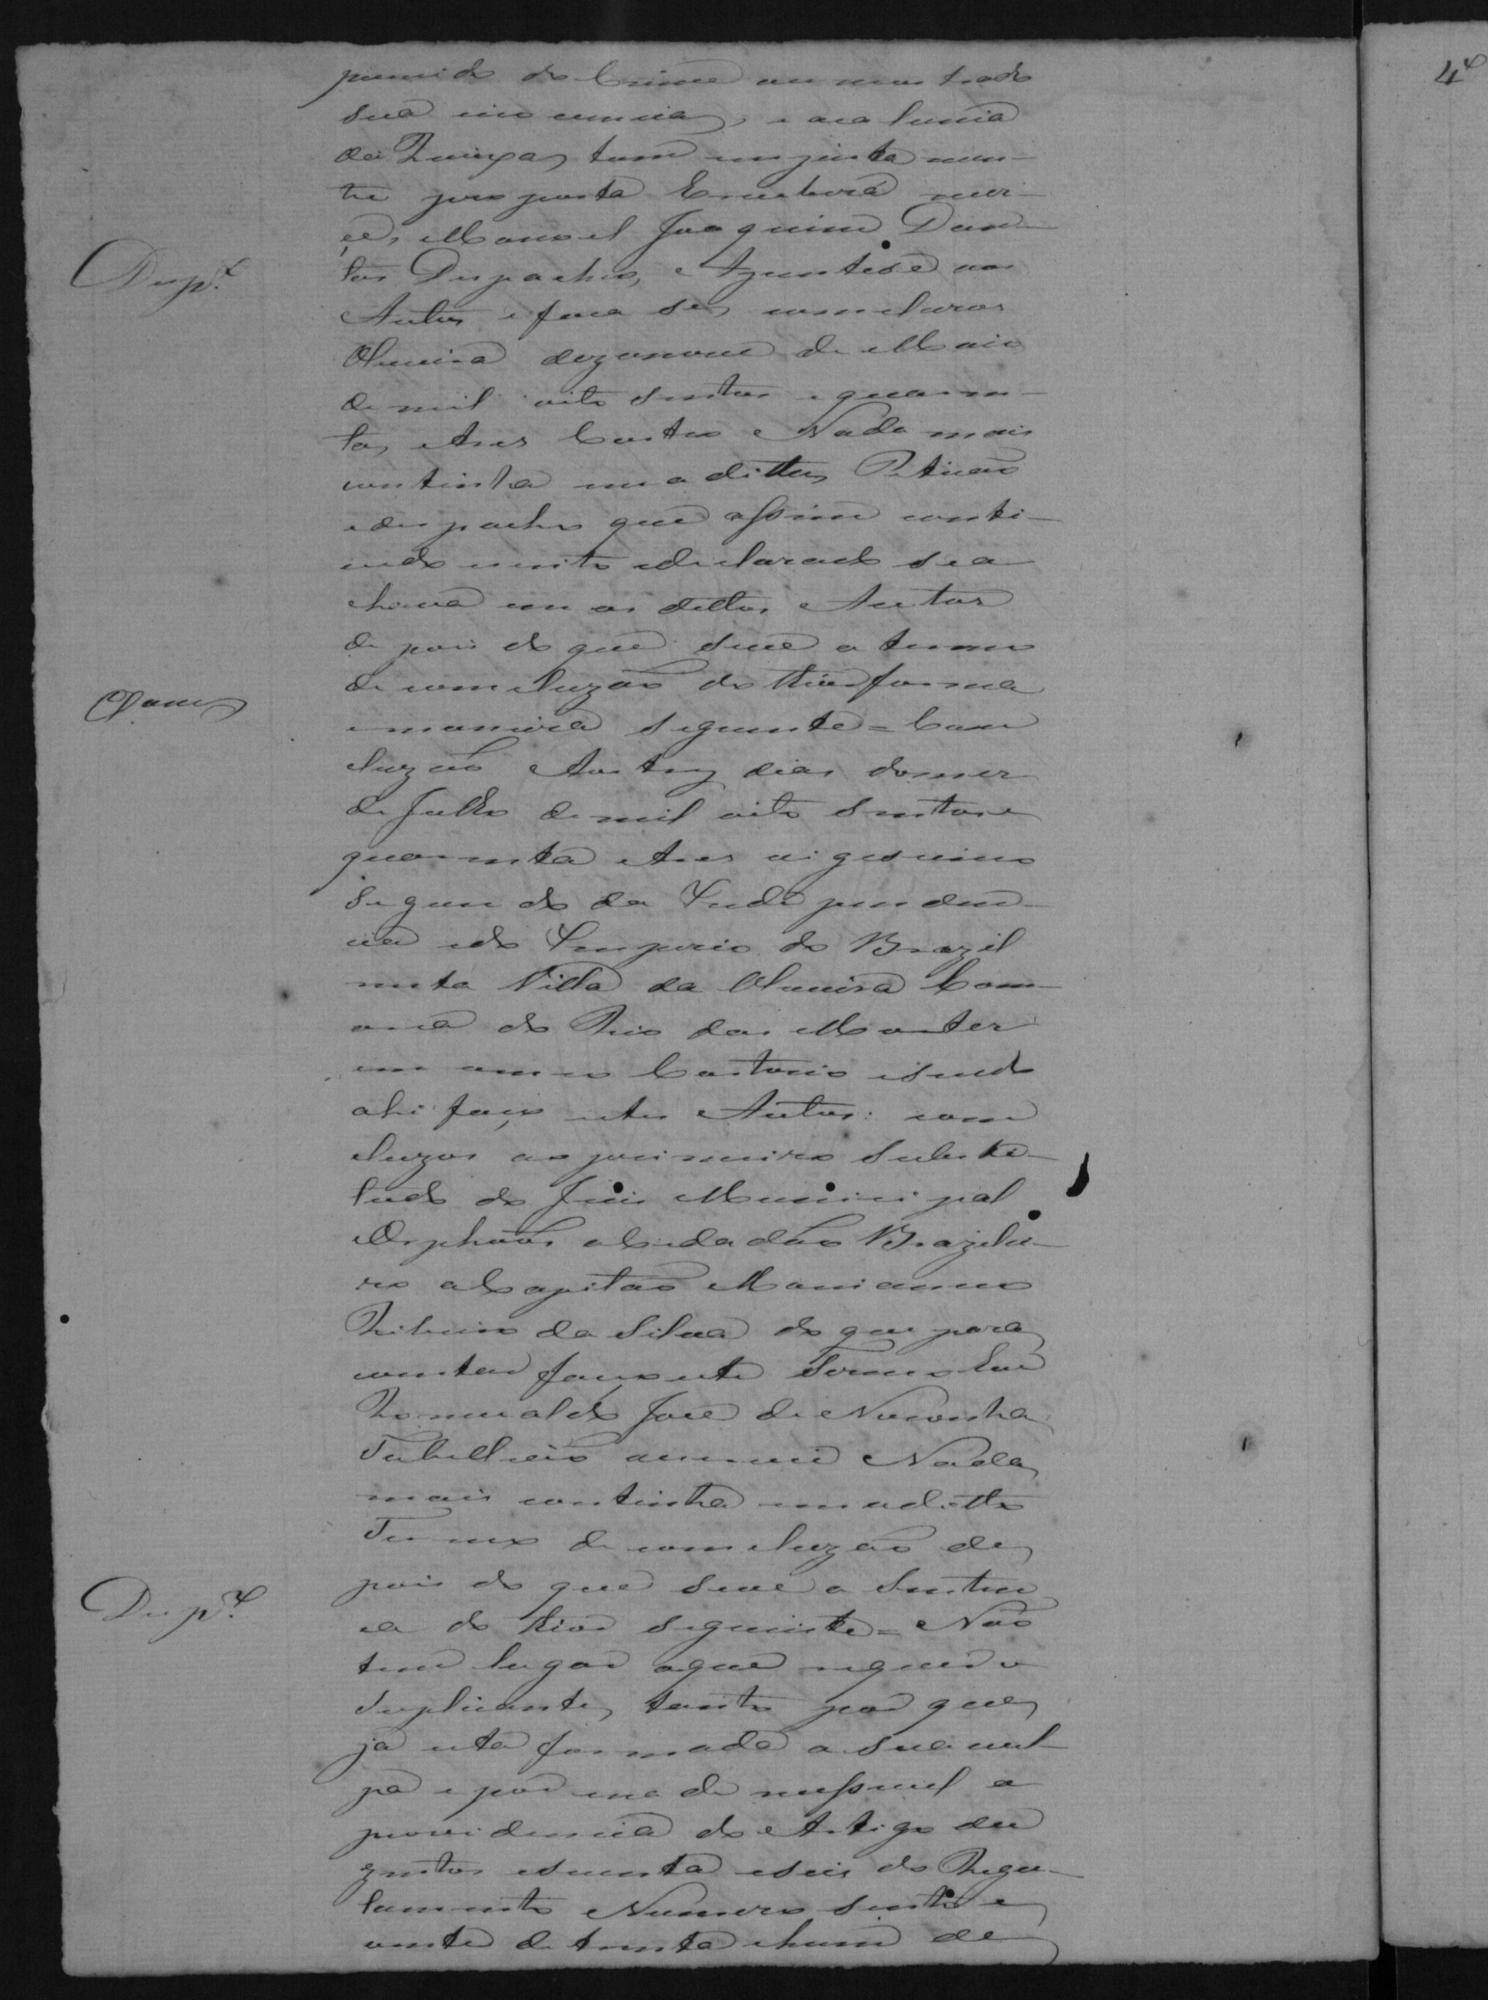 punido do Crime ou mostrado
sua inocencia, e a calunia
da Queixa, tam injusta men-
te proposta Espera receberá mer-
ce, Manoel Joaquim Dan-
tas Despacho, Ajuntese aos
Desp.º
Autos e faca se conclusos
Oliveira dezanove de Maio
de mil oito sentos e quaren-
ta, e tres Castro Nada mais
continha em a ditta Petição
e despacho que assim conti-
nado escrito e declarado se a
chava em os dittos Autos
de pois do que se ve o termo
de comcluzaõ do thior forma
e maneira seguinte = Com
cluzaõ Aos trez dias do mez
de Julho de mil oito sentos e
quarenta e tres vigesimo
segundo da Independen-
cia e do Imperio do Brazil
nesta Villa da Oliveira Com-
arca do Rio das Mortes
em o meu Cartorio e sendo
ahi faço estes Autos com
cluzos ao primeiro subste-
tuto do Juis Municipal
e Orphaõs o Cidadaõ Brazilei-
ro o Capitaõ Marianno
Ribeiro da Silva do que para
constar faço este Termo Eu
Romualdo José de Noronha
Tabelliaõ escrevi Nada
mais continha em o ditto
Termo de comcluzaõ de
pois do que se ve a Senten
Desp.º
ca do thior seguinte = Naõ
tem lugar o que requer o
Suplicante, tanto por que
já está formada a sua cul-
pa e por ina de missivel a
providencia do Artigo du
zentos e secenta e seis do Regu-
lamento Numero sento e
vinte de trinta e hum de
4